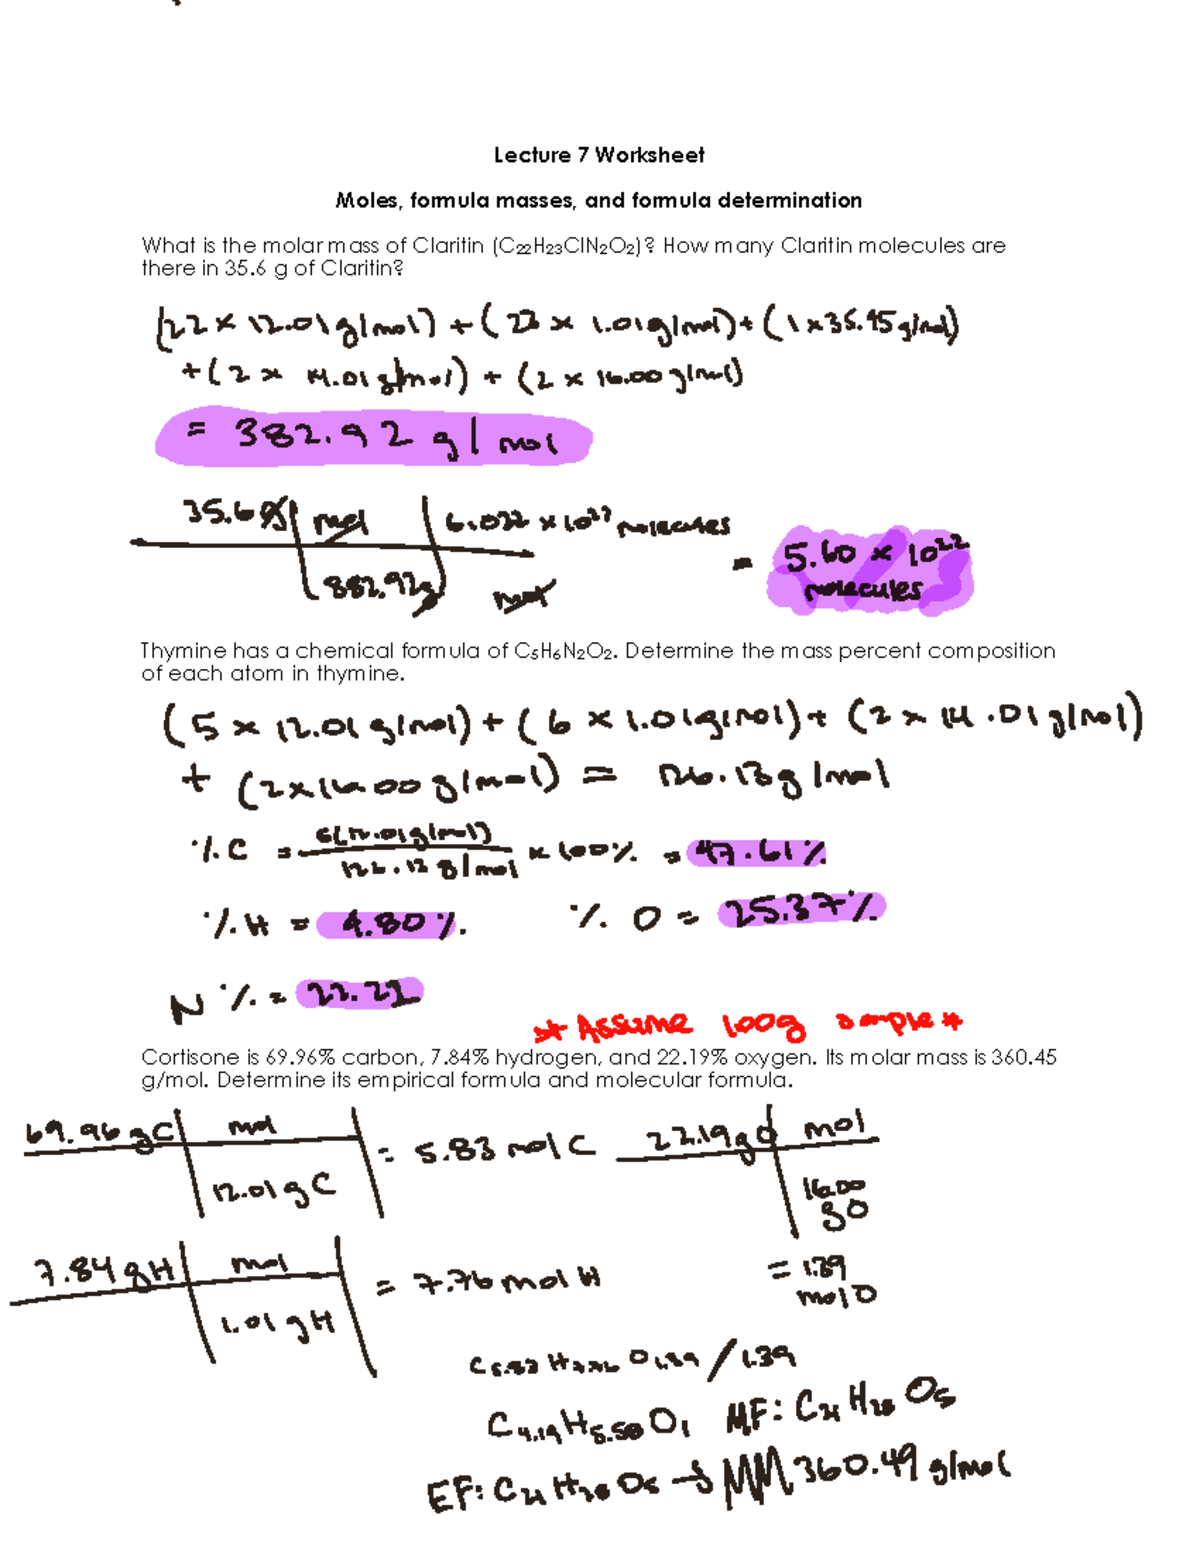 Lecture 7 Worksheet
Moles, formula masses, and formula determination
What is the molar mass of Claritin (C₂₂H₂₃ClN₂O₂)? How many Claritin molecules are
there in 35.6 g of Claritin?
(22 × 12.01 g/mol) + (23 × 1.01 g/mol) + (1 × 35.45 g/mol)
+ (2 × 14.01 g/mol) + (2 × 16.00 g/mol)
= 382.92 g/mol
35.6 g | mol | 6.022 × 10²³ molecules
382.92 g | mol
= 5.60 × 10²²
molecules
Thymine has a chemical formula of C₅H₆N₂O₂. Determine the mass percent composition
of each atom in thymine.
(5 × 12.01 g/mol) + (6 × 1.01 g/mol) + (2 × 14.01 g/mol)
+ (2 × 16.00 g/mol) = 126.13 g/mol
% C = 5(12.01 g/mol) / 126.13 g/mol × 100% = 47.61%
% H = 4.80%. % O = 25.37%
N % = 22.22
* Assume 100g sample *
Cortisone is 69.96% carbon, 7.84% hydrogen, and 22.19% oxygen. Its molar mass is 360.45
g/mol. Determine its empirical formula and molecular formula.
69.96 g C | mol
12.01 g C
= 5.83 mol C
22.19 g O | mol
16.00
g O
= 1.39
mol O
7.84 g H | mol
1.01 g H
= 7.76 mol H
C₅.₈₃ H₇.₇₆ O₁.₃₉ / 1.39
C₄.₁₉H₅.₅₈O₁ MF: C₂₁ H₂₈ O₅
EF: C₂₁ H₂₈ O₅ → MM 360.49 g/mol